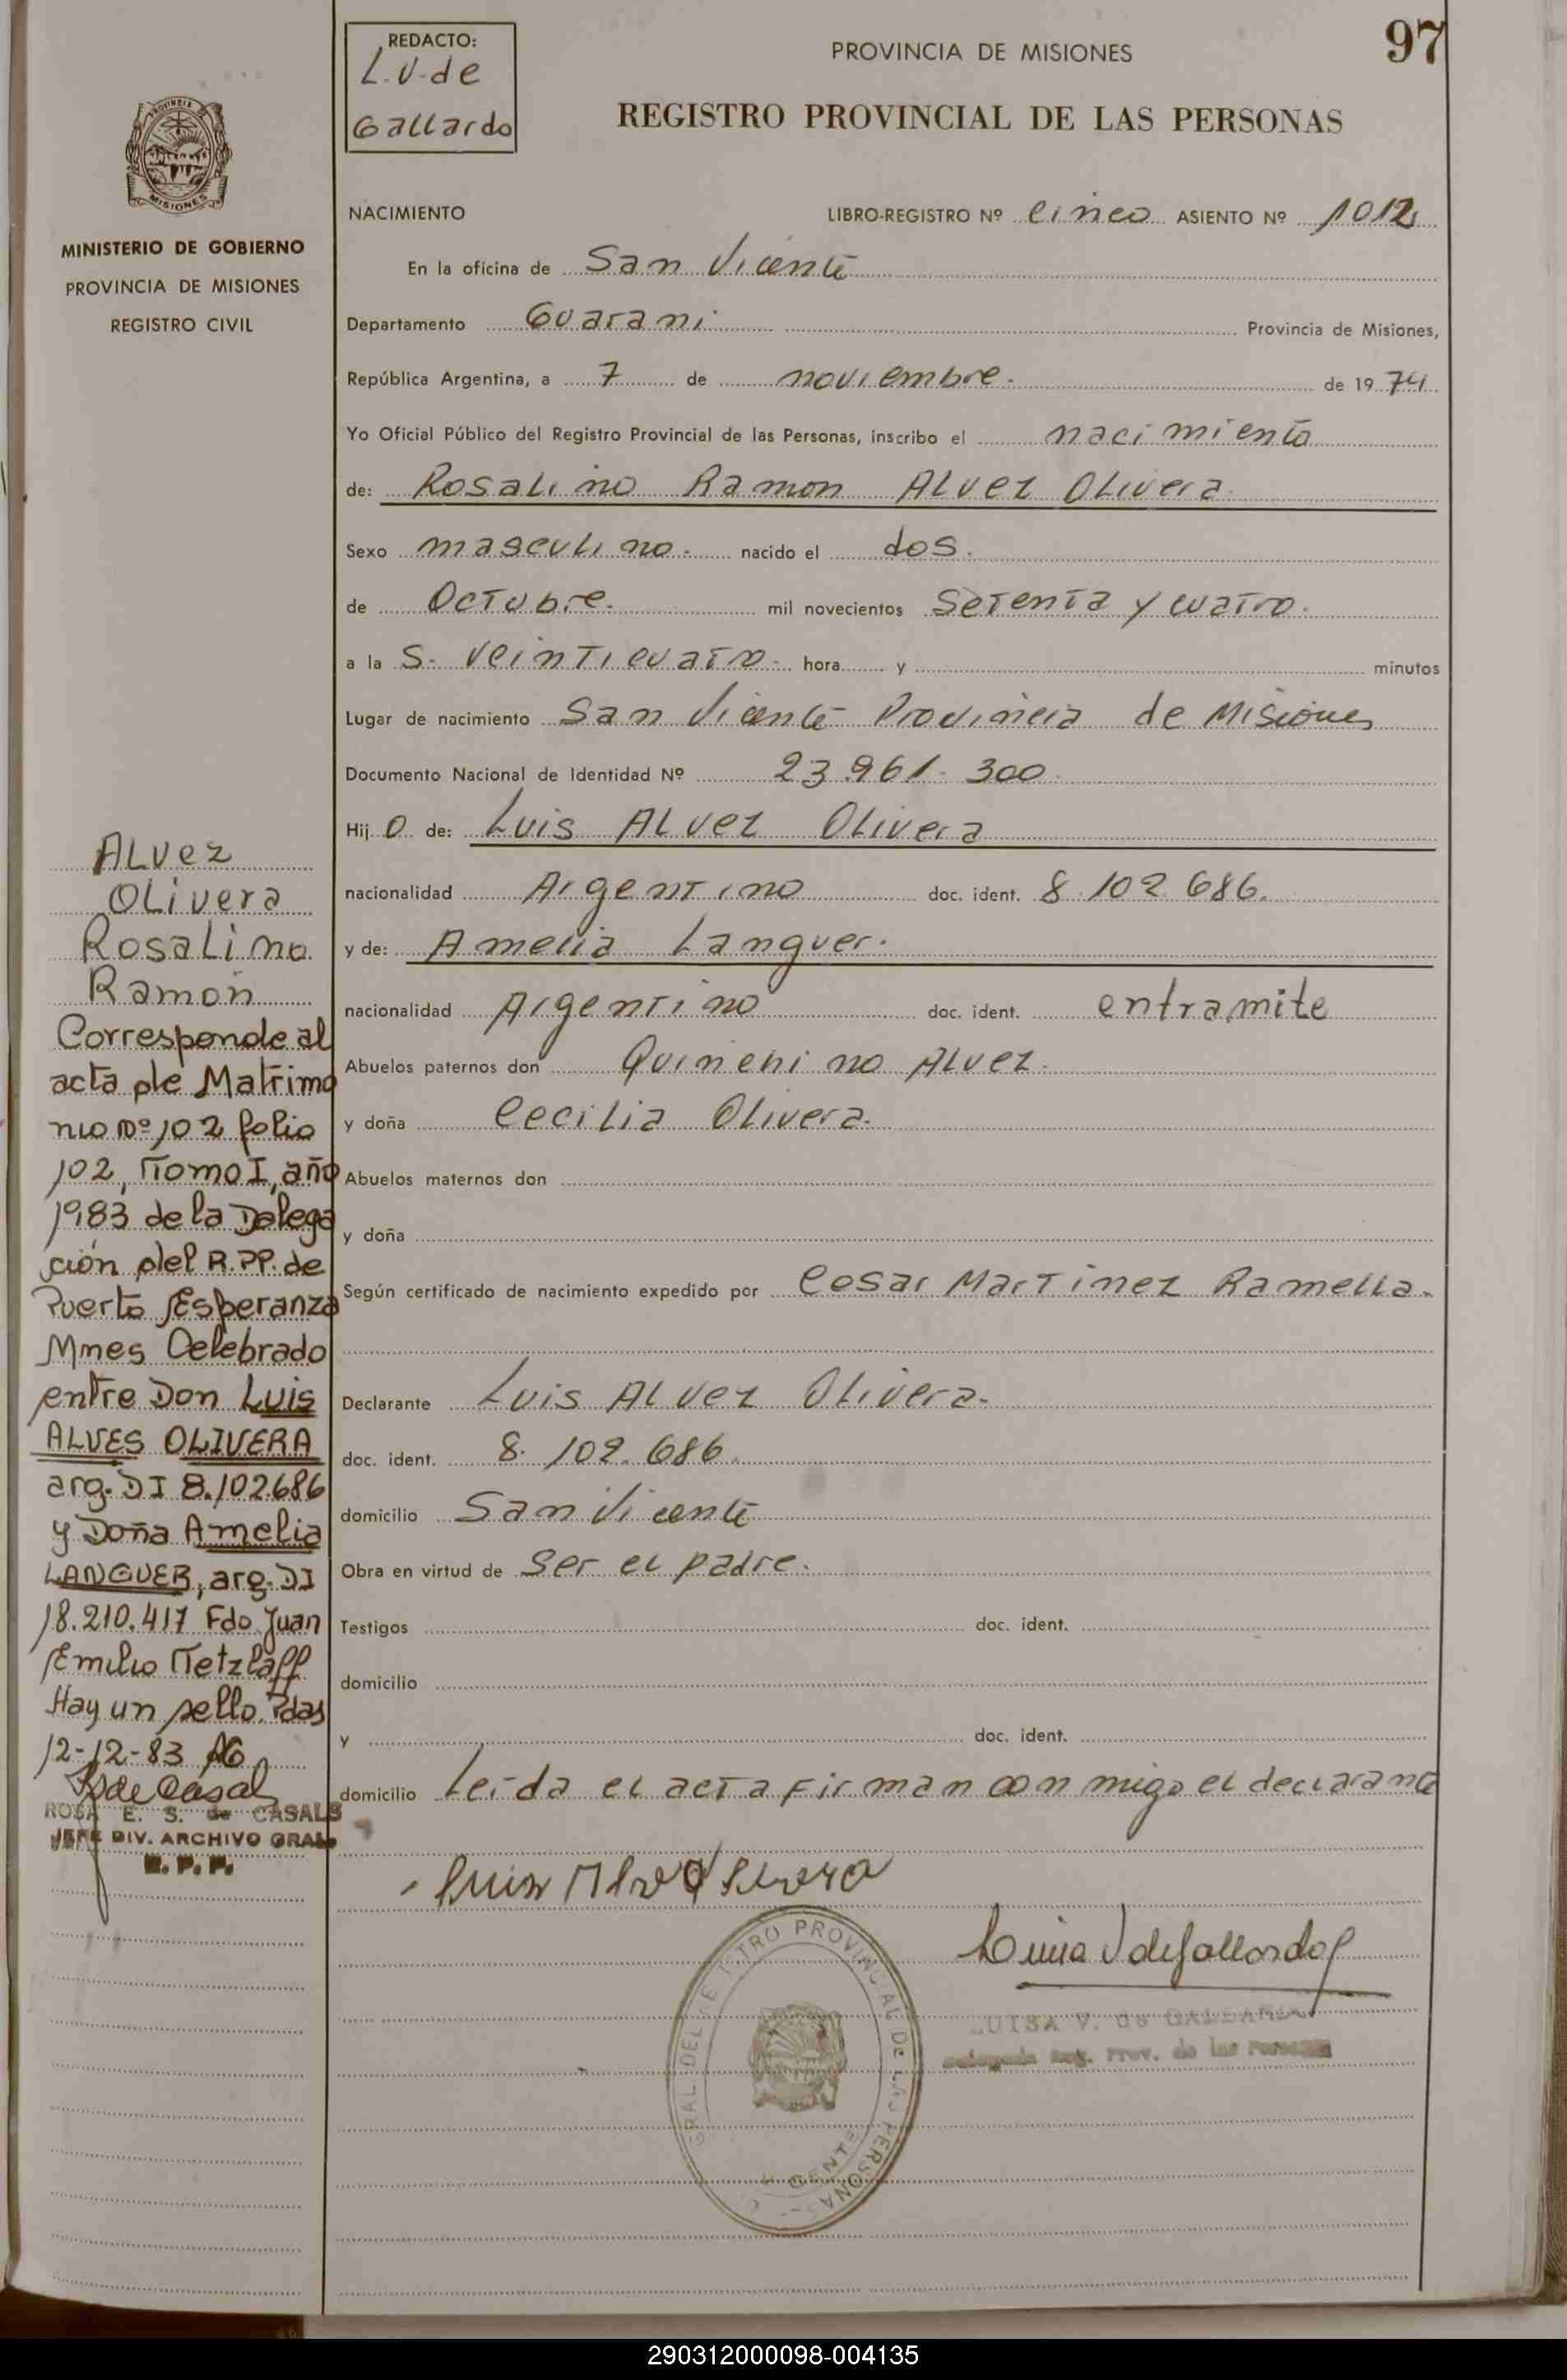 REDACTO:
L.V. de
Gallardo
PROVINCIA DE MISIONES
97
REGISTRO PROVINCIAL DE LAS PERSONAS
PROVINCIA
MISIONES
MINISTERIO DE GOBIERNO
PROVINCIA DE MISIONES
REGISTRO CIVIL
NACIMIENTO
LIBRO-REGISTRO Nº cinco ASIENTO Nº 1012
En la oficina de San Vicente
Departamento Guarani Provincia de Misiones,
República Argentina, a 7 de noviembre. de 1974
Yo Oficial Público del Registro Provincial de las Personas, inscribo el nacimiento
de: Rosalino Ramon Alvez Olivera.
Sexo masculino. nacido el dos.
de Octubre. mil novecientos Setenta y cuatro.
a la S. veinticuatro. hora y minutos
Lugar de nacimiento San Vicente Provincia de Misiones
Documento Nacional de Identidad Nº 23.961.300.
Hij o de: Luis Alvez Olivera
nacionalidad Argentino doc. ident. 8.102.686.
y de: Amelia Languer.
nacionalidad Argentino doc. ident. entramite
Abuelos paternos don Quinchino Alvez.
y doña Cecilia Olivera.
Abuelos maternos don
y doña
Según certificado de nacimiento expedido por Cesar Martinez Ramella.
Declarante Luis Alvez Olivera.
doc. ident. 8.102.686.
domicilio San Vicente
Obra en virtud de Ser el padre.
Testigos doc. ident.
domicilio
y doc. ident.
domicilio Leida el acta firman conmigo el declarante
Alvez
Olivera
Rosalino
Ramón
Corresponde al
acta de Matrimo
nio Nº 102 folio
102, Tomo I, año
1983 de la Delega
ción del R.PP. de
Puerto Esperanza
Mnes Celebrado
entre Don Luis
ALVES OLIVERA
arg. DI 8.102.686
y Doña Amelia
LANGUER, arg. DI
18.210.417 Fdo Juan
Emilio Tetzlaff
Hay un sello. Pdas
12-12-83
ROSA E. S. de CASALS
JEFE DIV. ARCHIVO GRAL
R. P. P.
Luis Alve Olivera
Luisa V de Gallardo
LUISA V. de GALLARDO
Delegada Reg. Prov. de las Personas
GRAL. DEL REGISTRO PROVINCIAL DE LAS PERSONAS
VICENTE
290312000098-004135